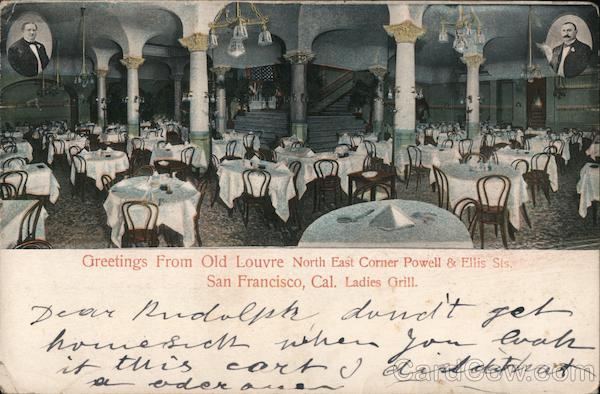 Greetings From Old Louvre North East Corner Powell & Ellis Sts.
San Francisco, Cal. Ladies Grill.
Dear Rudolph dond't get
homesick when you look
it this cart I
a
CardCow.com